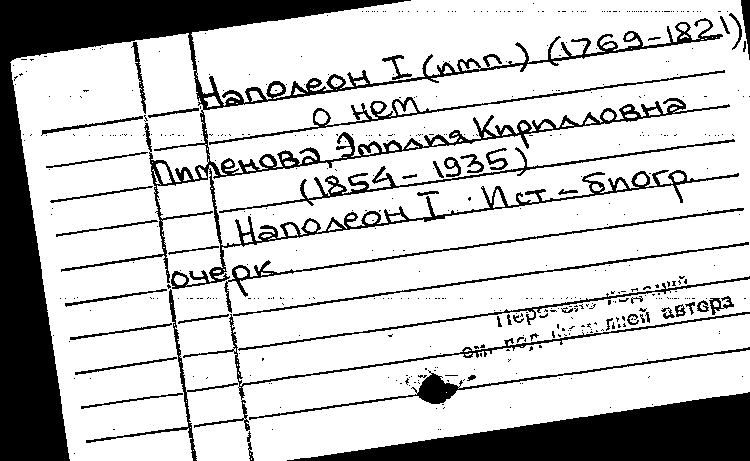 Наполеон I (имп.) (1769-1821),
о нем.
Пименова, Эмилия Кирилловна
(1854-1935)
Наполеон I. : Ист.-биогр.
очерк
Перечень изданий
см. под фамилией автора